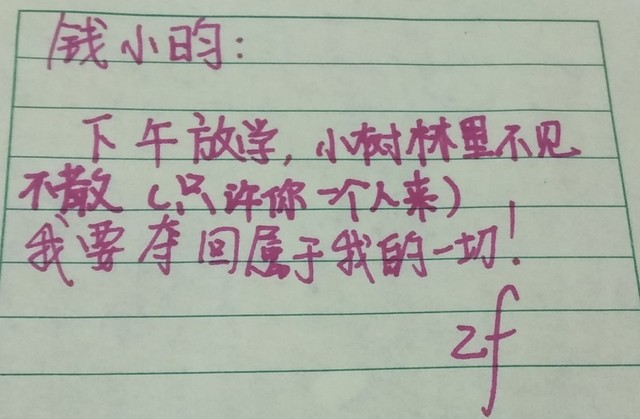 钱小昀:
下午放学,小树林里不见
不散(只许你一个人来)
我要夺回属于我的一切!
zf